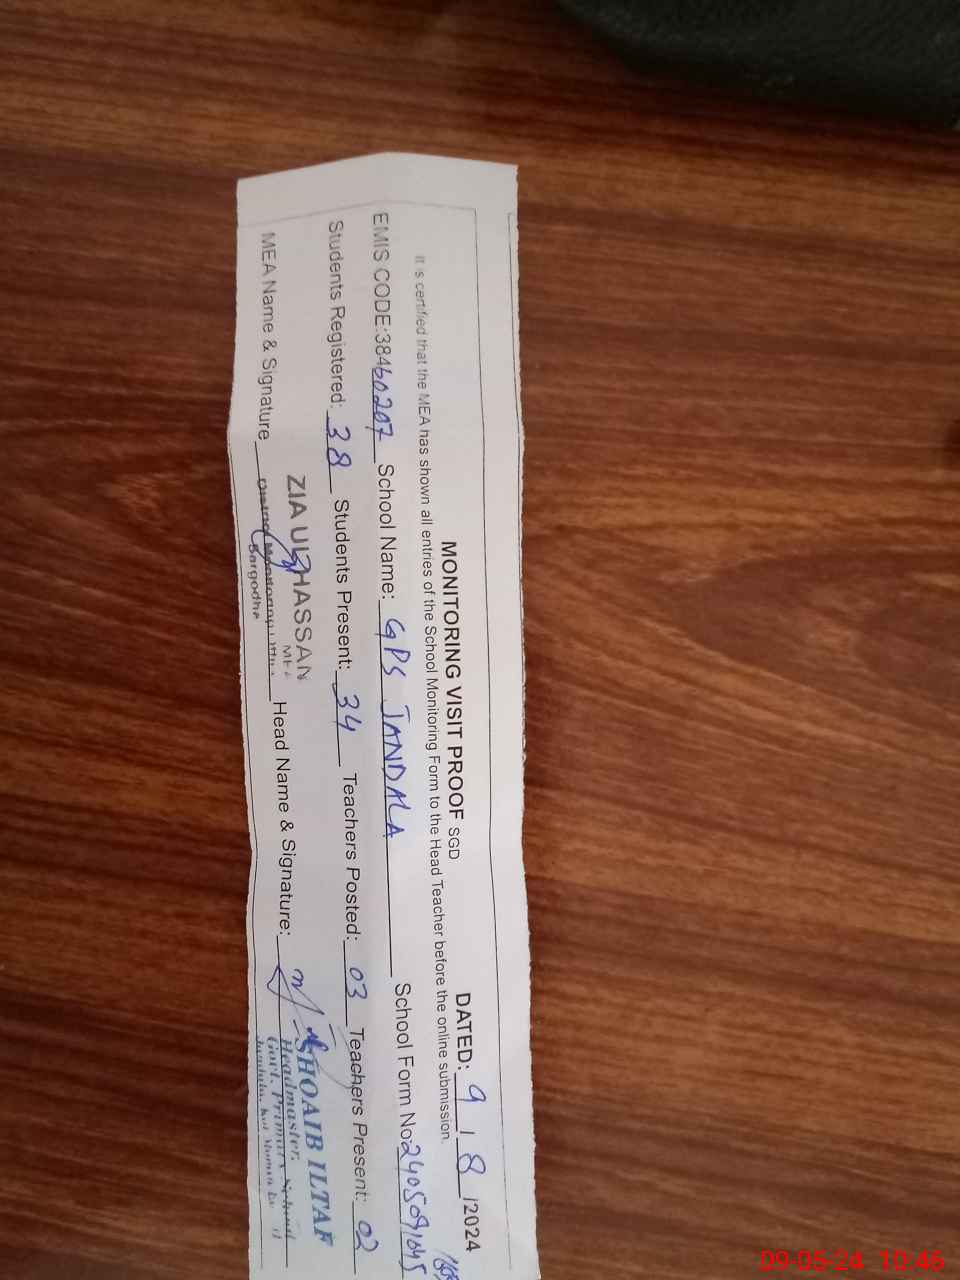 MONITORING VISIT PROOF SGD DATED: 9/8/2024
It is certified that the MEA has shown all entries of the School Monitoring Form to the Head Teacher before the online submission.
EMIS CODE:38460207 School Name: GPS JANDALA School Form No:2405091045
Students Registered: 38 Students Present: 34 Teachers Posted: 03 Teachers Present: 02
MEA Name & Signature Head Name & Signature:
ZIA UL HASSAN
MEA
Sargodha
SHOAIB ILTAF
Headmaster
Govt. Primary School
09-05-24 10:46